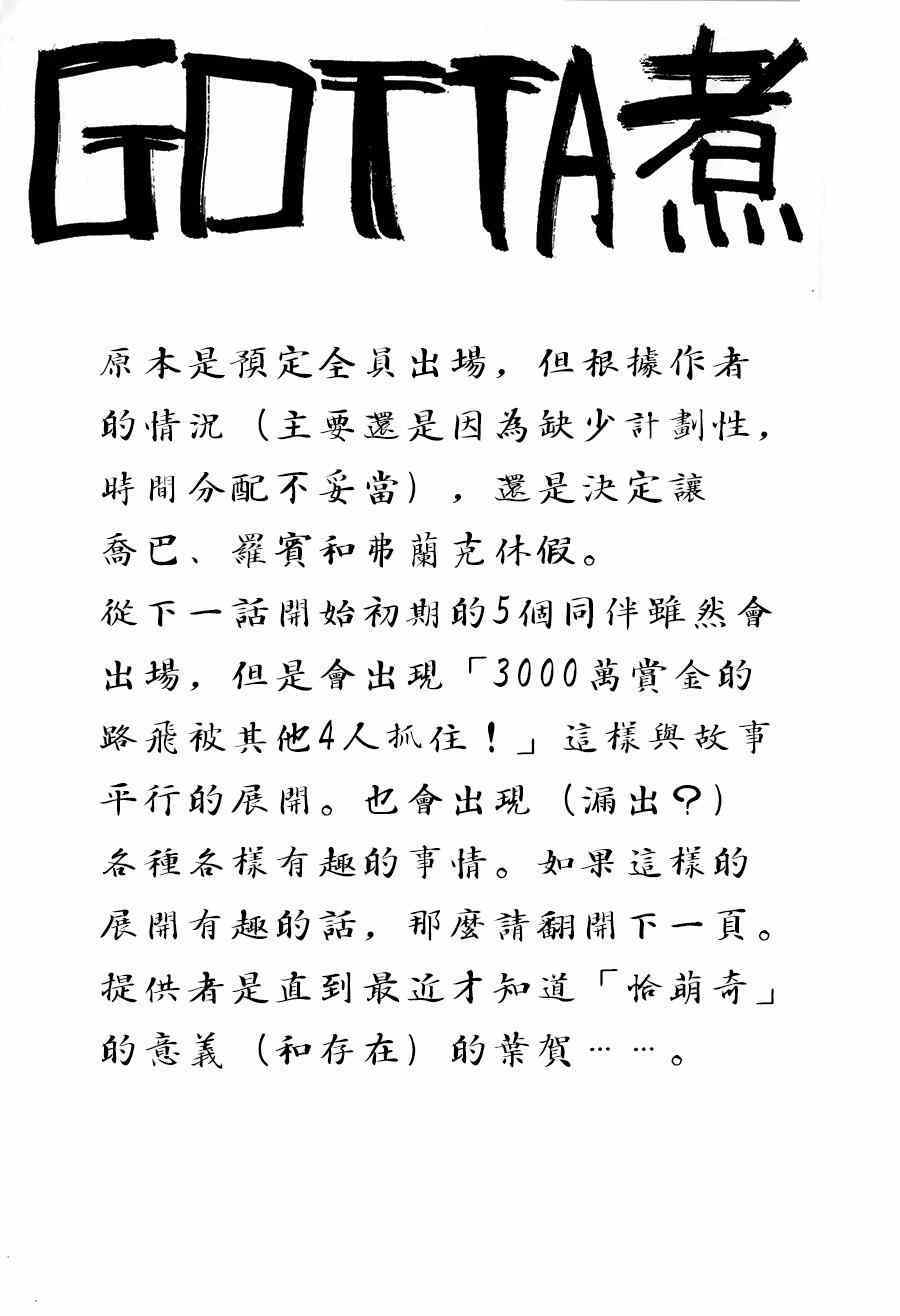 GOTTA煮
原本是預定全員出場，但根據作者
的情況（主要還是因為缺少計劃性，
時間分配不妥當），還是決定讓
喬巴、羅賓和弗蘭克休假。
從下一話開始初期的5個同伴雖然會
出場，但是會出現「3000萬賞金的
路飛被其他4人抓住！」這樣與故事
平行的展開。也會出現（漏出？）
各種各樣有趣的事情。如果這樣的
展開有趣的話，那麼請翻開下一頁。
提供者是直到最近才知道「恰萌奇」
的意義（和存在）的葉賀……。